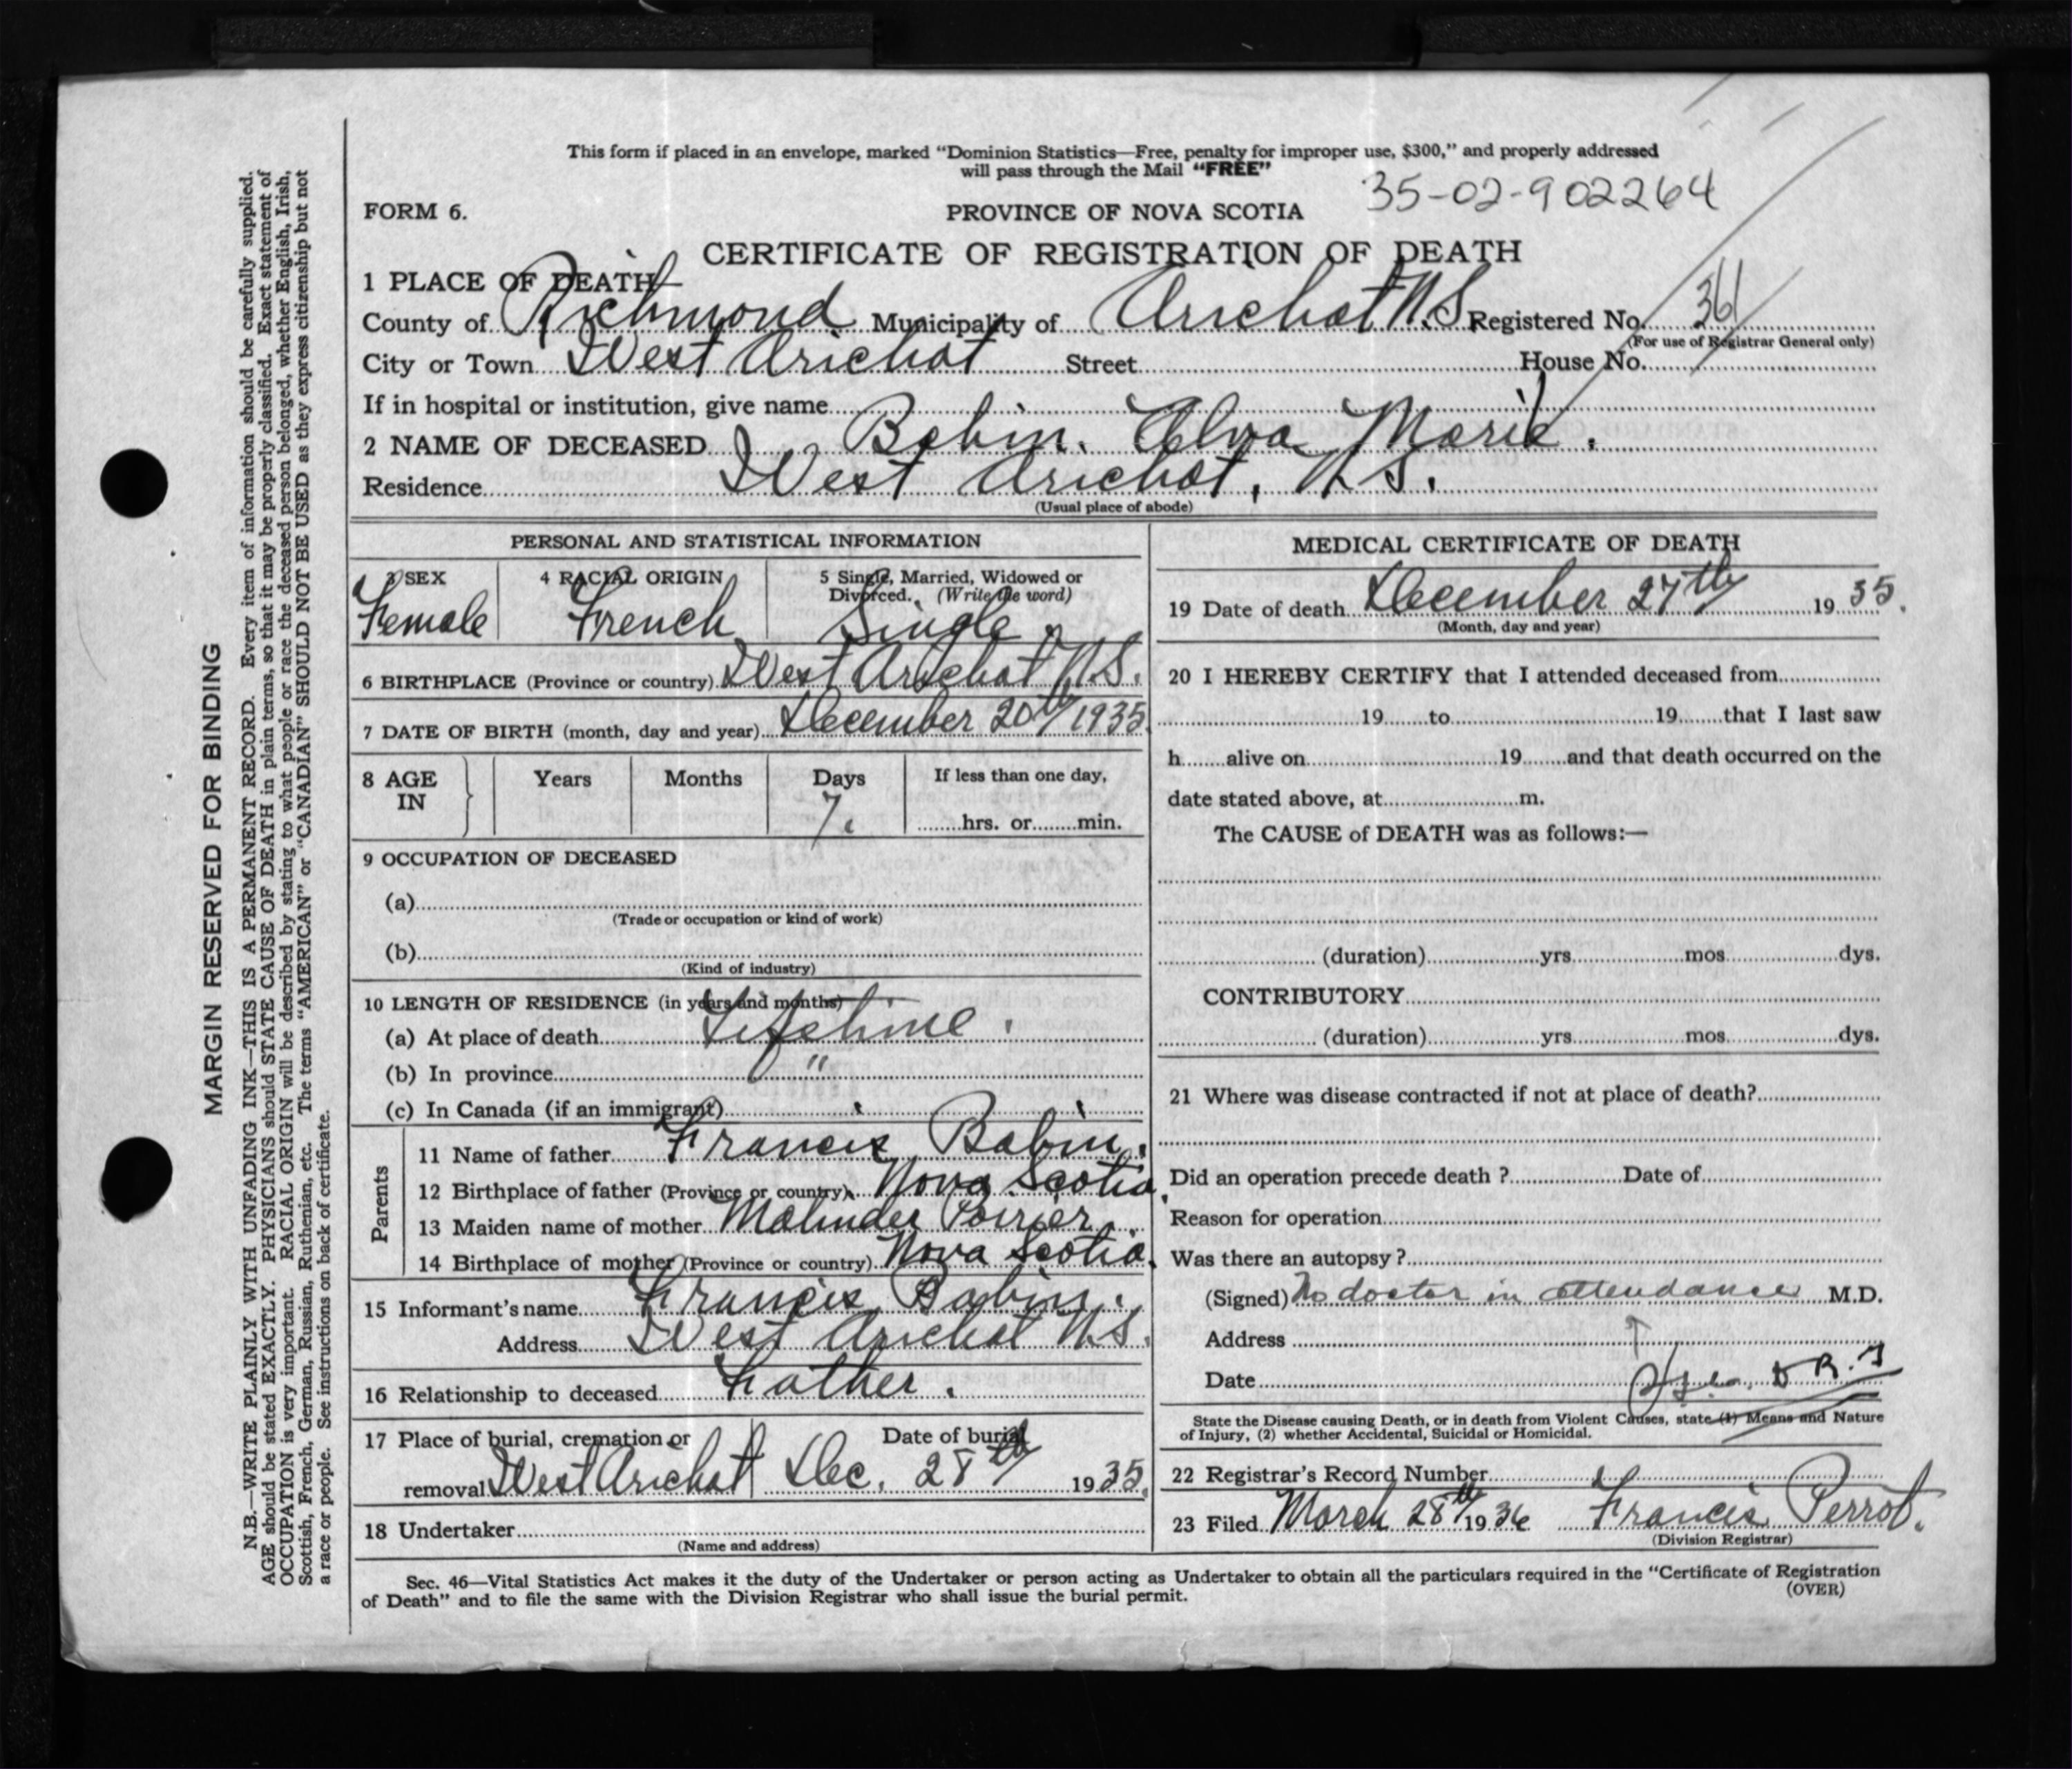 This form if placed in an envelope, marked “Dominion Statistics—Free, penalty for improper use, $300,” and properly addressed
will pass through the Mail “FREE”
35-02-902264
FORM 6.
PROVINCE OF NOVA SCOTIA
CERTIFICATE OF REGISTRATION OF DEATH
1 PLACE OF DEATH
County of Richmond Municipality of Arichat N.S. Registered No. 361
(For use of Registrar General only)
City or Town West Arichat Street House No.
If in hospital or institution, give name
2 NAME OF DECEASED Babin. Alva Marie.
Residence West Arichat, N.S.
(Usual place of abode)
PERSONAL AND STATISTICAL INFORMATION
3 SEX Female
4 RACIAL ORIGIN French
5 Single, Married, Widowed or
Divorced. (Write the word)
Single
6 BIRTHPLACE (Province or country) West Arichat N.S.
7 DATE OF BIRTH (month, day and year) December 20th/1935
8 AGE IN Years Months Days If less than one day,
7. hrs. or min.
9 OCCUPATION OF DECEASED
(a)
(Trade or occupation or kind of work)
(b)
(Kind of industry)
10 LENGTH OF RESIDENCE (in years and months)
(a) At place of death Lifetime.
(b) In province "
(c) In Canada (if an immigrant)
Parents
11 Name of father Francis Babin.
12 Birthplace of father (Province or country) Nova Scotia.
13 Maiden name of mother Malinder Poirier.
14 Birthplace of mother (Province or country) Nova Scotia.
15 Informant's name Francis Babin.
Address West Arichat N.S.
16 Relationship to deceased Father.
17 Place of burial, cremation or Date of burial
removal West Arichat Dec. 28th 1935.
18 Undertaker
(Name and address)
MEDICAL CERTIFICATE OF DEATH
19 Date of death December 27th 1935.
(Month, day and year)
20 I HEREBY CERTIFY that I attended deceased from
19 to 19 that I last saw
h alive on 19 and that death occurred on the
date stated above, at m.
The CAUSE of DEATH was as follows:—
(duration) yrs mos dys.
CONTRIBUTORY
(duration) yrs mos dys.
21 Where was disease contracted if not at place of death?
Did an operation precede death ? Date of
Reason for operation
Was there an autopsy ?
(Signed) No doctor in attendance M.D.
Address
Date
State the Disease causing Death, or in death from Violent Causes, state (1) Means and Nature
of Injury, (2) whether Accidental, Suicidal or Homicidal.
22 Registrar's Record Number
23 Filed March 28th 1936 Francis Perrot.
(Division Registrar)
Sec. 46—Vital Statistics Act makes it the duty of the Undertaker or person acting as Undertaker to obtain all the particulars required in the “Certificate of Registration
of Death” and to file the same with the Division Registrar who shall issue the burial permit. (OVER)
MARGIN RESERVED FOR BINDING
N.B.—WRITE PLAINLY WITH UNFADING INK—THIS IS A PERMANENT RECORD. Every item of information should be carefully supplied.
AGE should be stated EXACTLY. PHYSICIANS should STATE CAUSE OF DEATH in plain terms, so that it may be properly classified. Exact statement of
OCCUPATION is very important. RACIAL ORIGIN will be described by stating to what people or race the deceased person belonged, whether English, Irish,
Scottish, French, German, Russian, Ruthenian, etc. The terms “AMERICAN” or “CANADIAN” SHOULD NOT BE USED as they express citizenship but not
a race or people. See instructions on back of certificate.